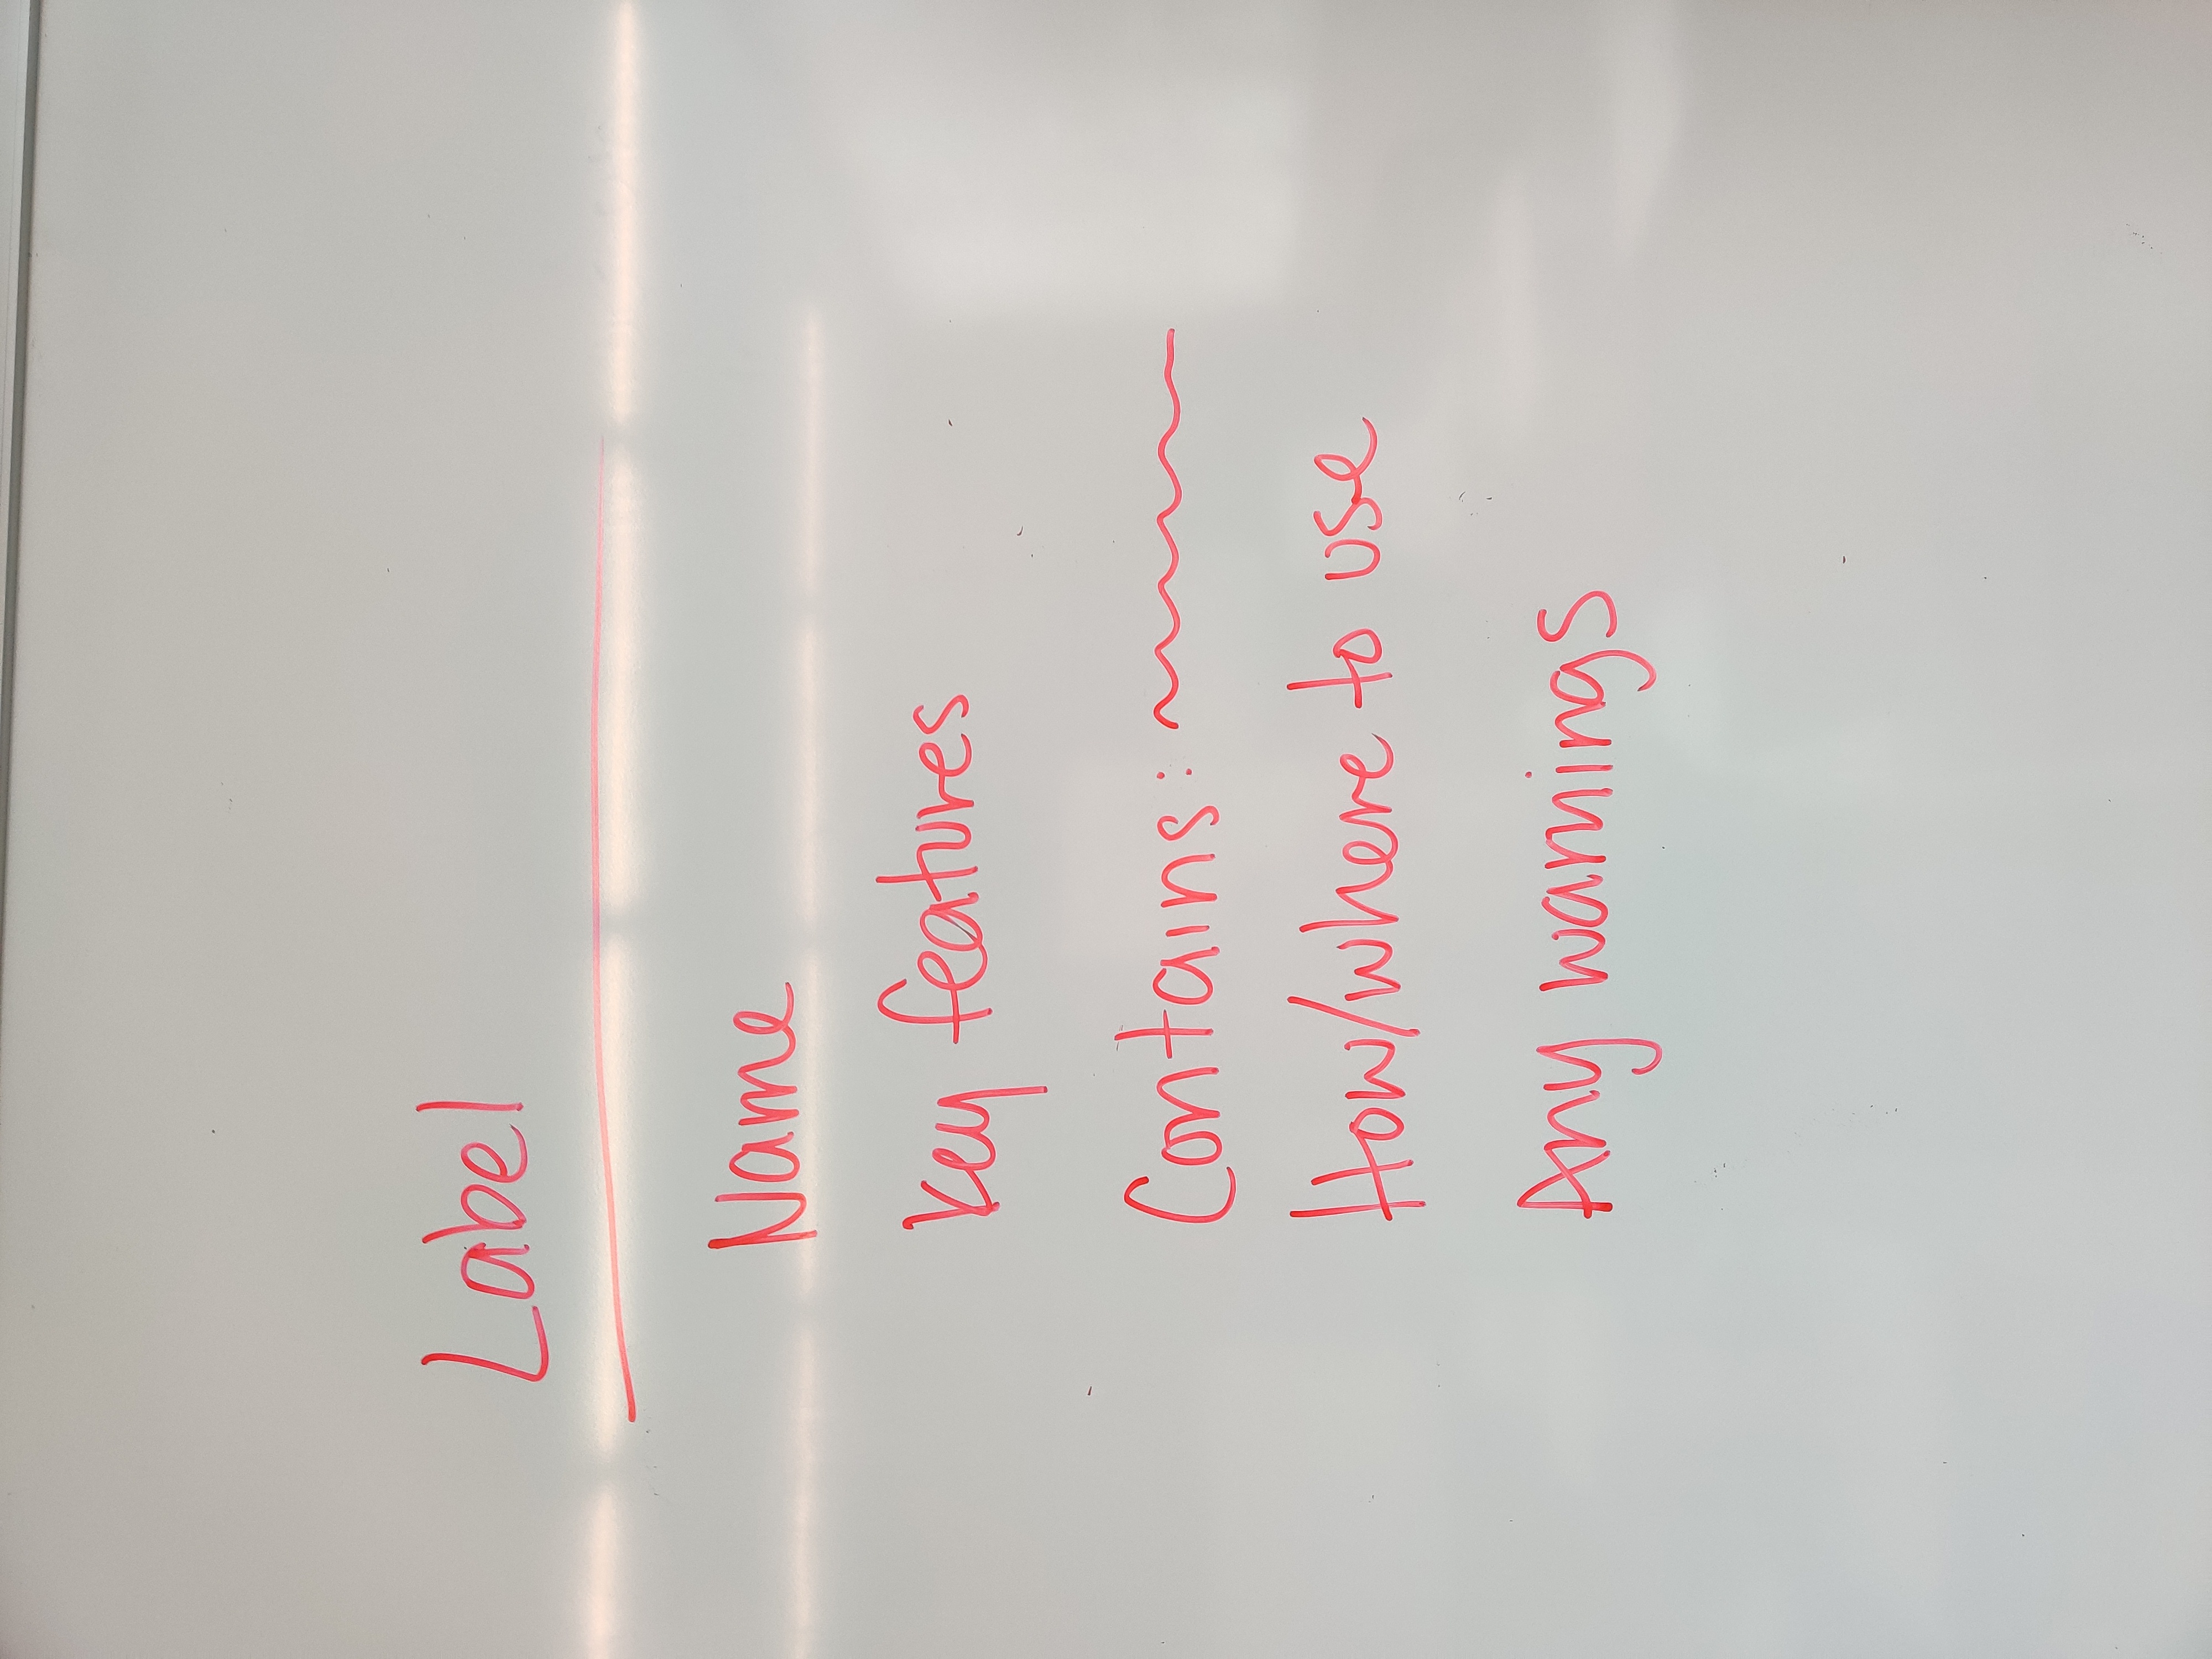 Label
Name
Key features
Contains:
How/where to use
Any warnings